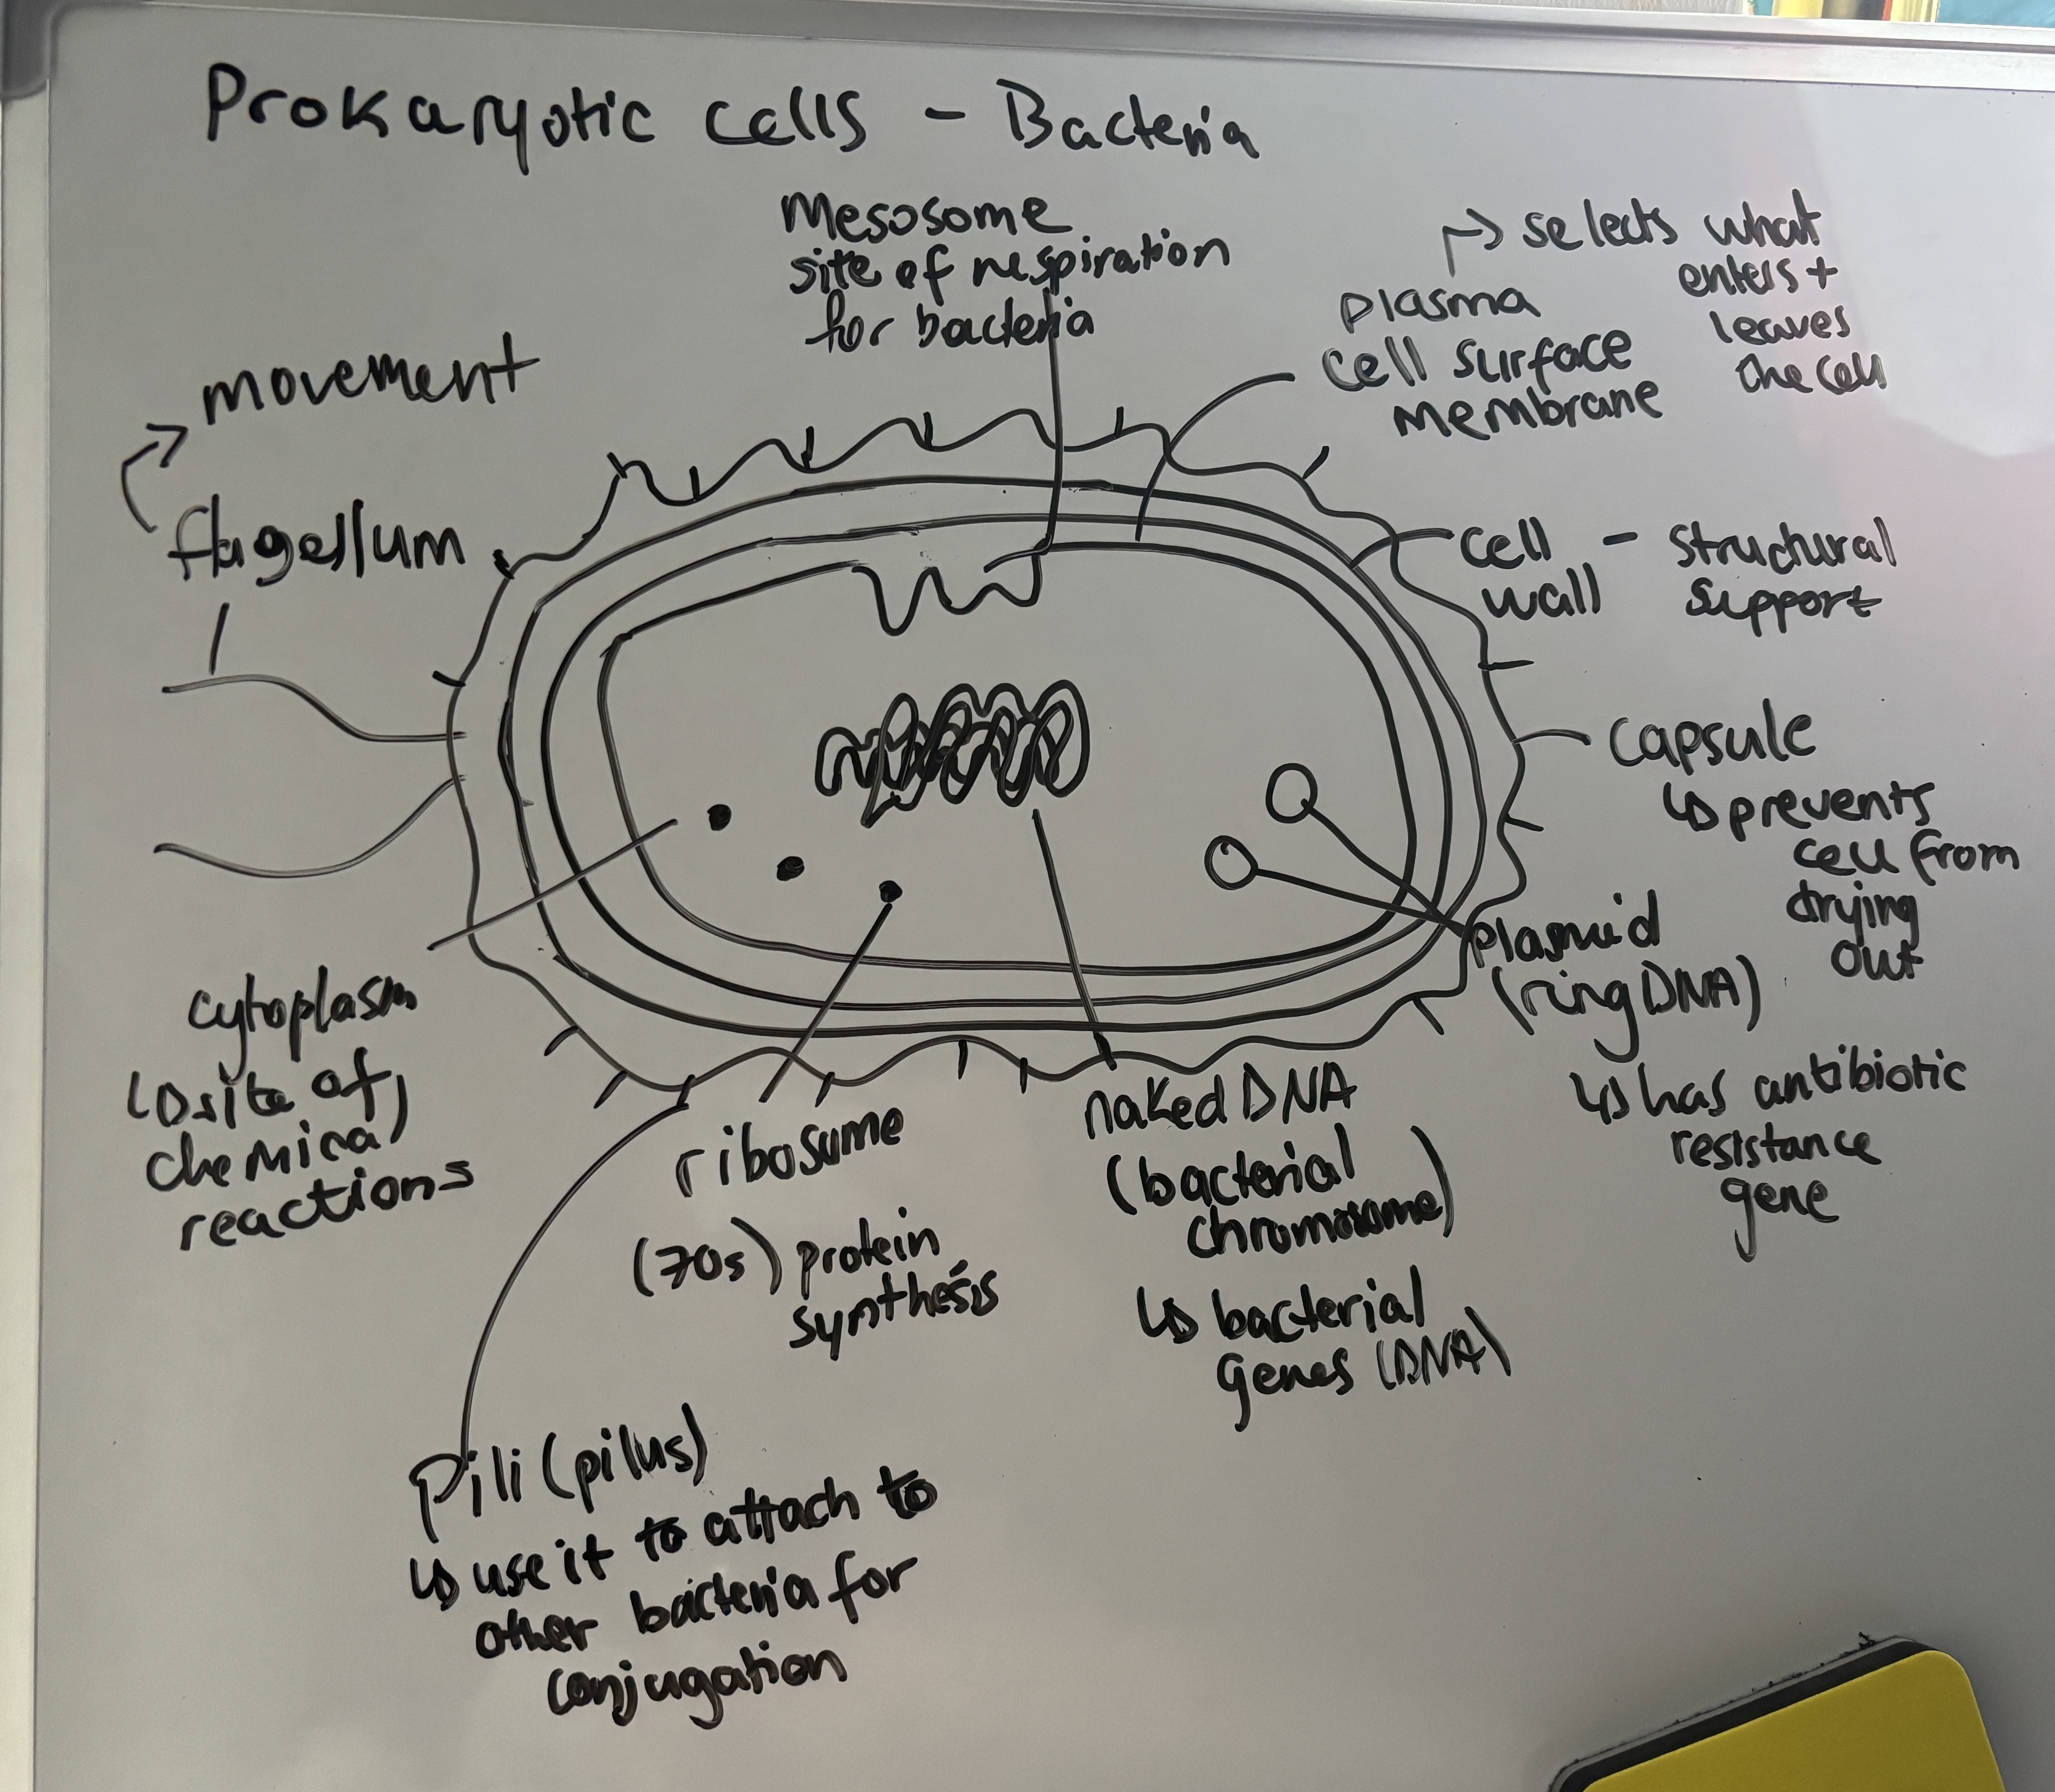 Prokaryotic cells - Bacteria
Mesosome
site of respiration
for bacteria
→ selects what
enters +
leaves
the cell
plasma
cell surface
membrane
movement
flagellum
cell - structural
wall support
capsule
↳ prevents
cell from
drying
out
plasmid
(ring DNA)
↳ has antibiotic
resistance
gene
cytoplasm
↳ site of
chemical
reactions
ribosome
(70s) protein
synthesis
naked DNA
(bacterial
chromosome)
↳ bacterial
genes (DNA)
Pili (pilus)
↳ use it to attach to
other bacteria for
conjugation